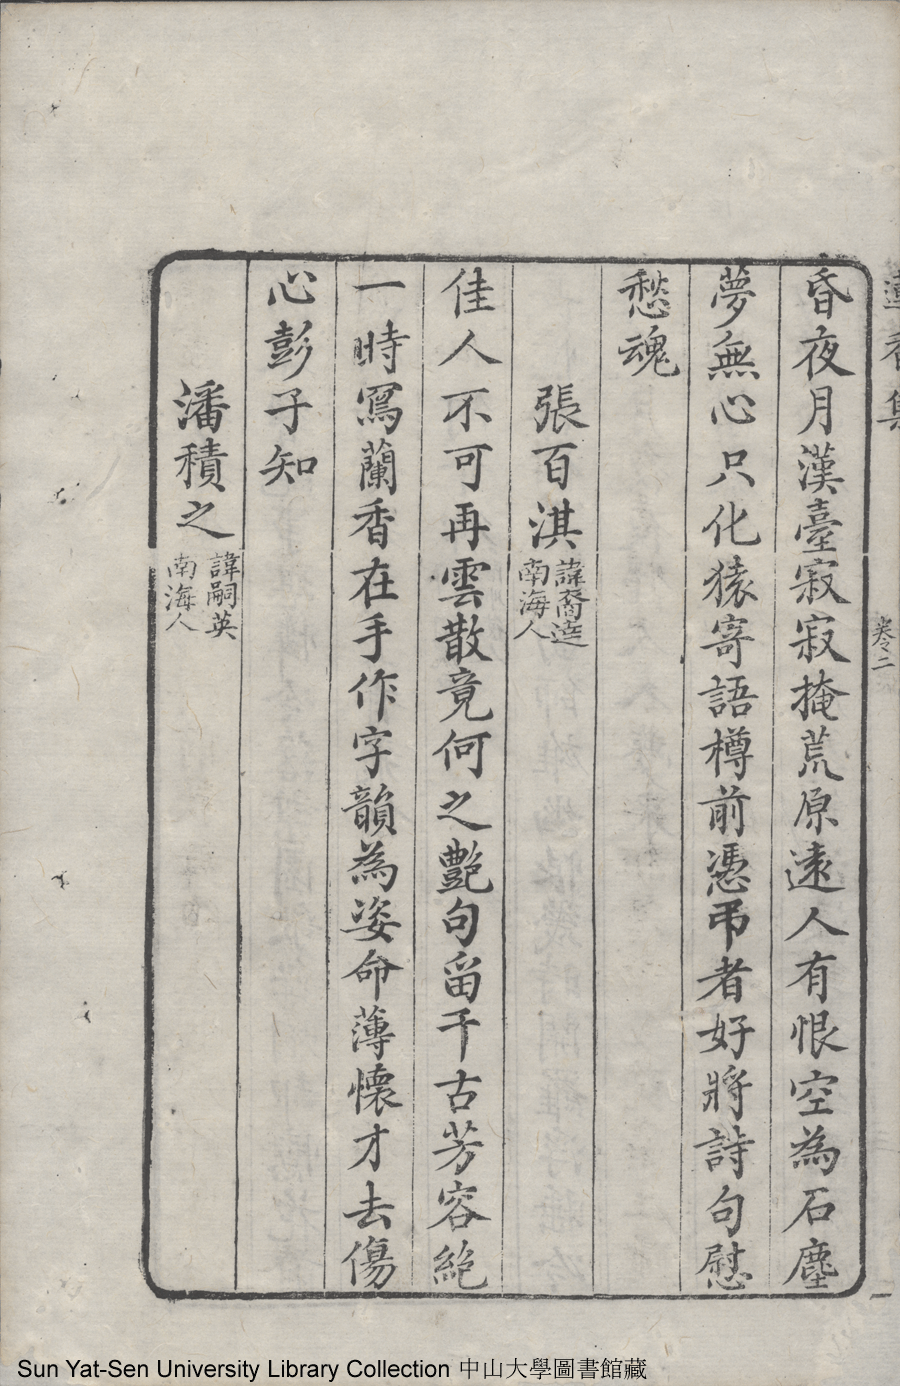 蓮香集
卷之二
昏夜月漢臺寂寂掩荒原遠人有恨空為石塵
夢無心只化猿寄語樽前憑弔者好將詩句慰
愁魂
張百淇 諱裔達 南海人
佳人不可再雲散竟何之艷句留千古芳容絕
一時寫蘭香在手作字韻為姿命薄懷才去傷
心彭子知
潘積之 諱嗣英 南海人
Sun Yat-Sen University Library Collection 中山大學圖書館藏